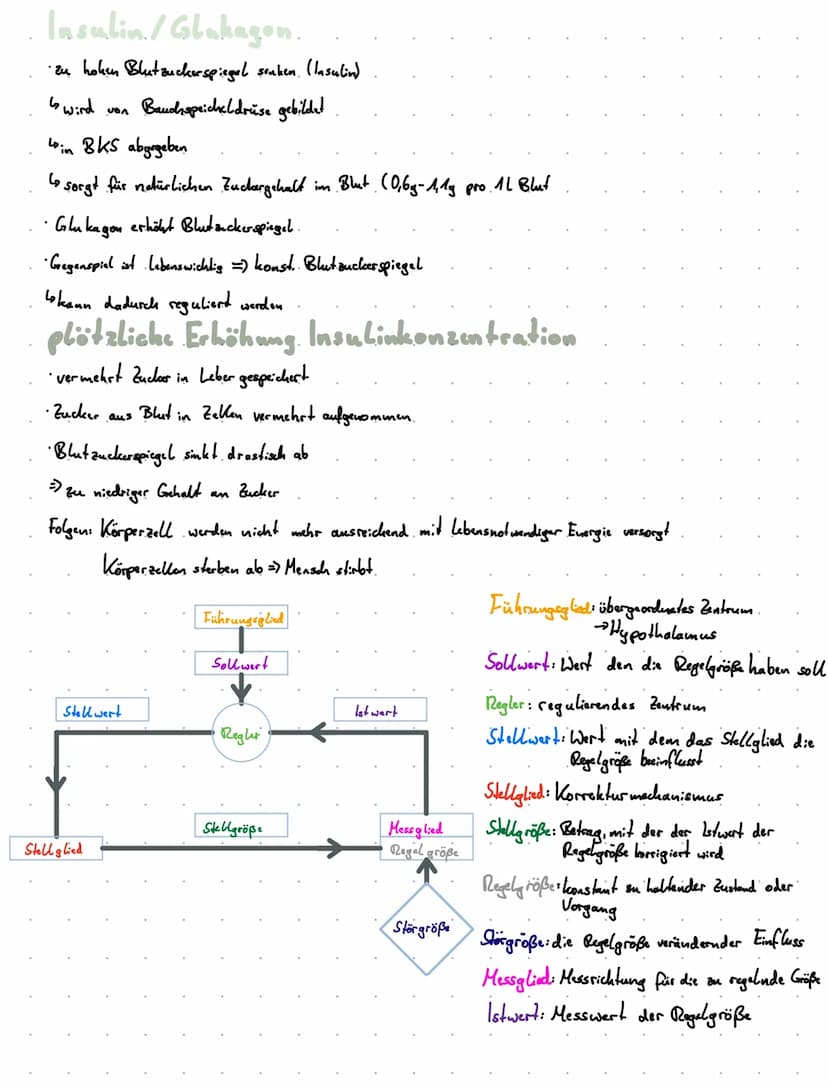 Insulin/Glukagon
· zu hohen Blutzuckerspiegel senken (Insulin)
↳ wird von Bauchspeicheldrüse gebildet
↳ in BKS abgegeben
↳ sorgt für natürlichen Zuckergehalt im Blut (0,6g-1,1g pro 1L Blut
· Glukagon erhöht Blutzuckerspiegel
· Gegenspiel ist lebenswichtig => konst. Blutzuckerspiegel
↳ kann dadurch reguliert werden
plötzliche Erhöhung Insulinkonzentration
· vermehrt Zucker in Leber gespeichert
· Zucker aus Blut in Zellen vermehrt aufgenommen
· Blutzuckerspiegel sinkt drastisch ab
=> zu niedriger Gehalt an Zucker
Folgen: Körperzell werden nicht mehr ausreichend mit lebensnotwendiger Energie versorgt
Körperzellen sterben ab => Mensch stirbt
Führungsglied
Sollwert
Stellwert
Istwert
Regler
Stellgröße
Messglied
Stellglied
Regelgröße
Störgröße
Führungsglied: übergeordnetes Zentrum
→ Hypothalamus
Sollwert: Wert den die Regelgröße haben soll
Regler: regulierendes Zentrum
Stellwert: Wert mit dem das Stellglied die
Regelgröße beeinflusst
Stellglied: Korrekturmechanismus
Stellgröße: Betrag, mit der der Istwert der
Regelgröße korrigiert wird
Regelgröße: konstant zu haltender Zustand oder
Vorgang
Störgröße: die Regelgröße verändernder Einfluss
Messglied: Messrichtung für die zu regelnde Größe
Istwert: Messwert der Regelgröße